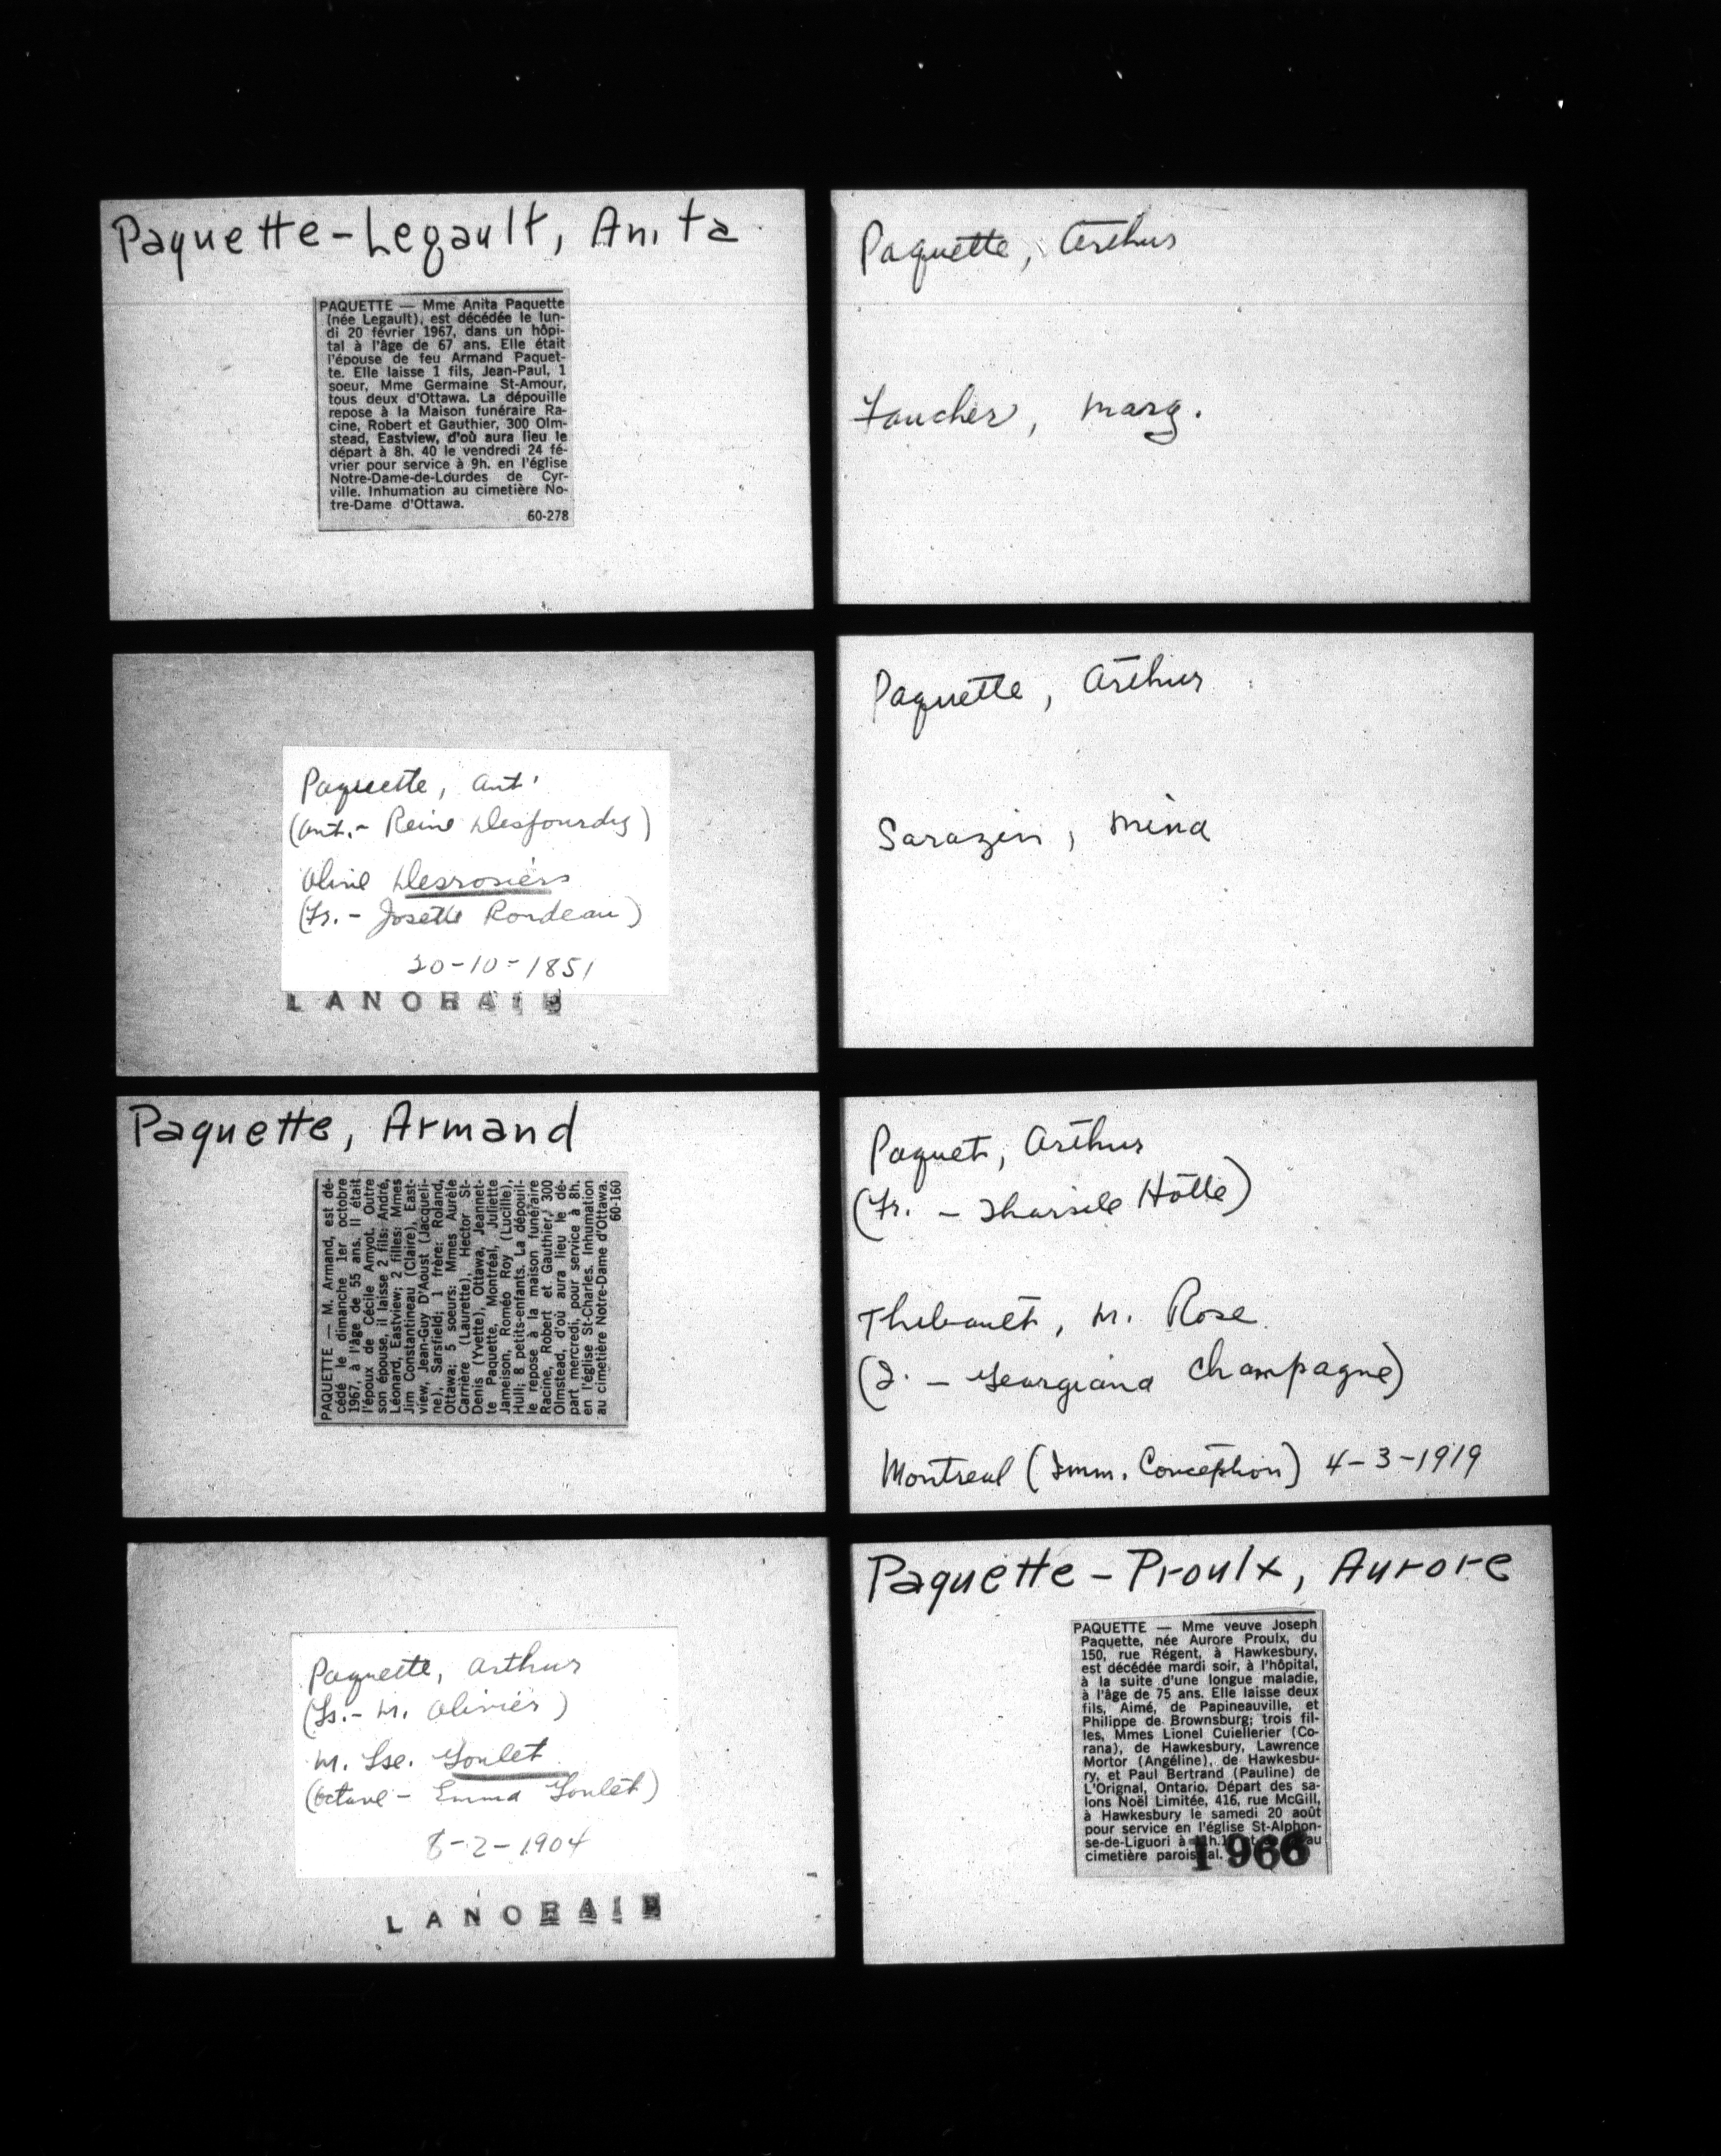 Paquette-Legault, Anita
PAQUETTE — Mme Anita Paquette
(née Legault), est décédée le lun-
di 20 février 1967, dans un hôpi-
tal à l'âge de 67 ans. Elle était
l'épouse de feu Armand Paquet-
te. Elle laisse 1 fils, Jean-Paul, 1
soeur, Mme Germaine St-Amour,
tous deux d'Ottawa. La dépouille
repose à la Maison funéraire Ra-
cine, Robert et Gauthier, 300 Olm-
stead, Eastview, d'où aura lieu le
départ à 8h. 40 le vendredi 24 fé-
vrier pour service à 9h. en l'église
Notre-Dame-de-Lourdes de Cyr-
ville. Inhumation au cimetière No-
tre-Dame d'Ottawa.
60-278
Paquette, Ant.
(Ant. - Reine Desjourdy)
Oline Desrosiers
(Fr. - Josette Rondeau)
20-10-1851
LANORAIE
Paquette, Armand
PAQUETTE — M. Armand, est dé-
cédé le dimanche 1er octobre
1967, à l'âge de 55 ans. Il était
l'époux de Cécile Amyot. Outre
son épouse, il laisse 2 fils: André,
Léonard, Eastview; 2 filles: Mmes
Jim Constantineau (Claire), East-
view, Jean-Guy D'Aoust (Jacqueli-
ne), Sarsfield; 1 frère: Roland,
Ottawa; 5 soeurs: Mmes Aurèle
Carrière (Laurette), Hector St-
Denis (Yvette), Ottawa, Jeannet-
te Paquette, Montréal, Juliette
Jameison, Roméo Roy (Lucille),
Hull; 8 petits-enfants. La dépouil-
le repose à la maison funéraire
Racine, Robert et Gauthier, 300
Olmstead, d'où aura lieu le dé-
part mercredi, pour service à 8h.
en l'église St-Charles. Inhumation
au cimetière Notre-Dame d'Ottawa.
60-160
Paquette, Arthur
(Ls. - M. Olivier)
M. Lse. Goulet
(Octave - Emma Goulet)
8-2-1904
LANORAIE
Paquette, Arthur
Faucher, Marg.
Paquette, Arthur
Sarazin, Mina
Paquet, Arthur
(Fr. - Tharsile Hotte)
Thibault, M. Rose
(J. - Georgiana Champagne)
Montreal (Imm. Conception) 4-3-1919
Paquette-Proulx, Aurore
PAQUETTE — Mme veuve Joseph
Paquette, née Aurore Proulx, du
150, rue Régent, à Hawkesbury,
est décédée mardi soir, à l'hôpital,
à la suite d'une longue maladie,
à l'âge de 75 ans. Elle laisse deux
fils, Aimé, de Papineauville, et
Philippe de Brownsburg; trois fil-
les, Mmes Lionel Cuiellerier (Co-
rana), de Hawkesbury, Lawrence
Mortor (Angéline), de Hawkesbu-
ry, et Paul Bertrand (Pauline) de
L'Orignal, Ontario. Départ des sa-
lons Noël Limitée, 416, rue McGill,
à Hawkesbury le samedi 20 août
pour service en l'église St-Alphon-
se-de-Liguori à au
cimetière paroissial.
1966